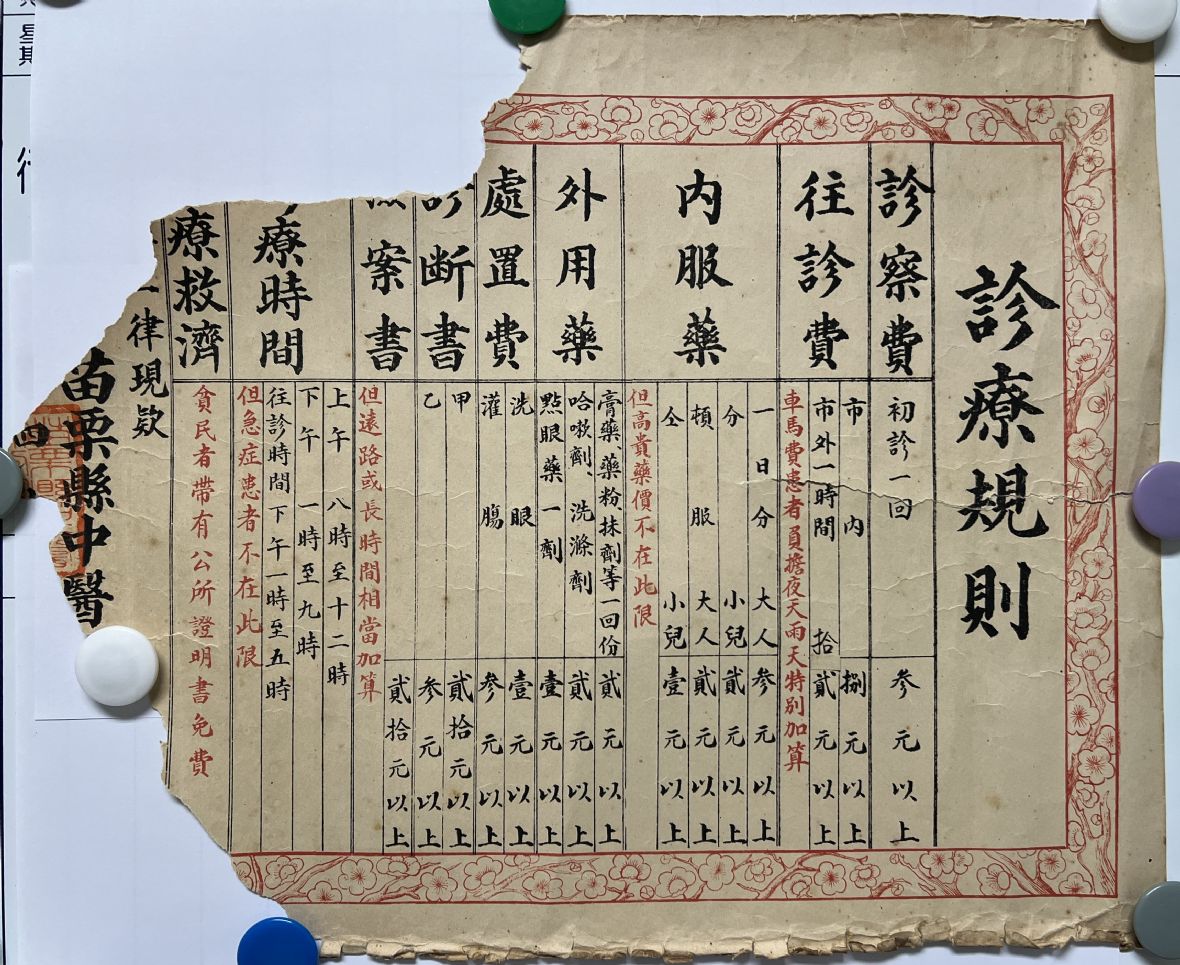 診療規則
診察費
初診一回
參元以上
往診費
市內
捌元以上
市外一時間
拾貳元以上
車馬費患者員擔夜天雨天特別加算
內服藥
一日分大人
參元以上
分小兒
貳元以上
頓服大人
貳元以上
仝小兒
壹元以上
但高貴藥價不在此限
外用藥
膏藥、藥粉、抹劑等一回份
貳元以上
哈嗽劑 洗滌劑
貳元以上
點眼藥一劑
壹元以上
處置費
洗眼
壹元以上
灌腸
參元以上
断書
甲
貳拾元以上
乙
參元以上
案書
貳拾元以上
但遠路或長時間相當加算
療時間
上午 八時至十二時
下午 一時至九時
往診時間下午一時至五時
但急症患者不在此限
療救濟
貧民者帶有公所證明書免費
一律現欵
苗栗縣中醫
四
星期